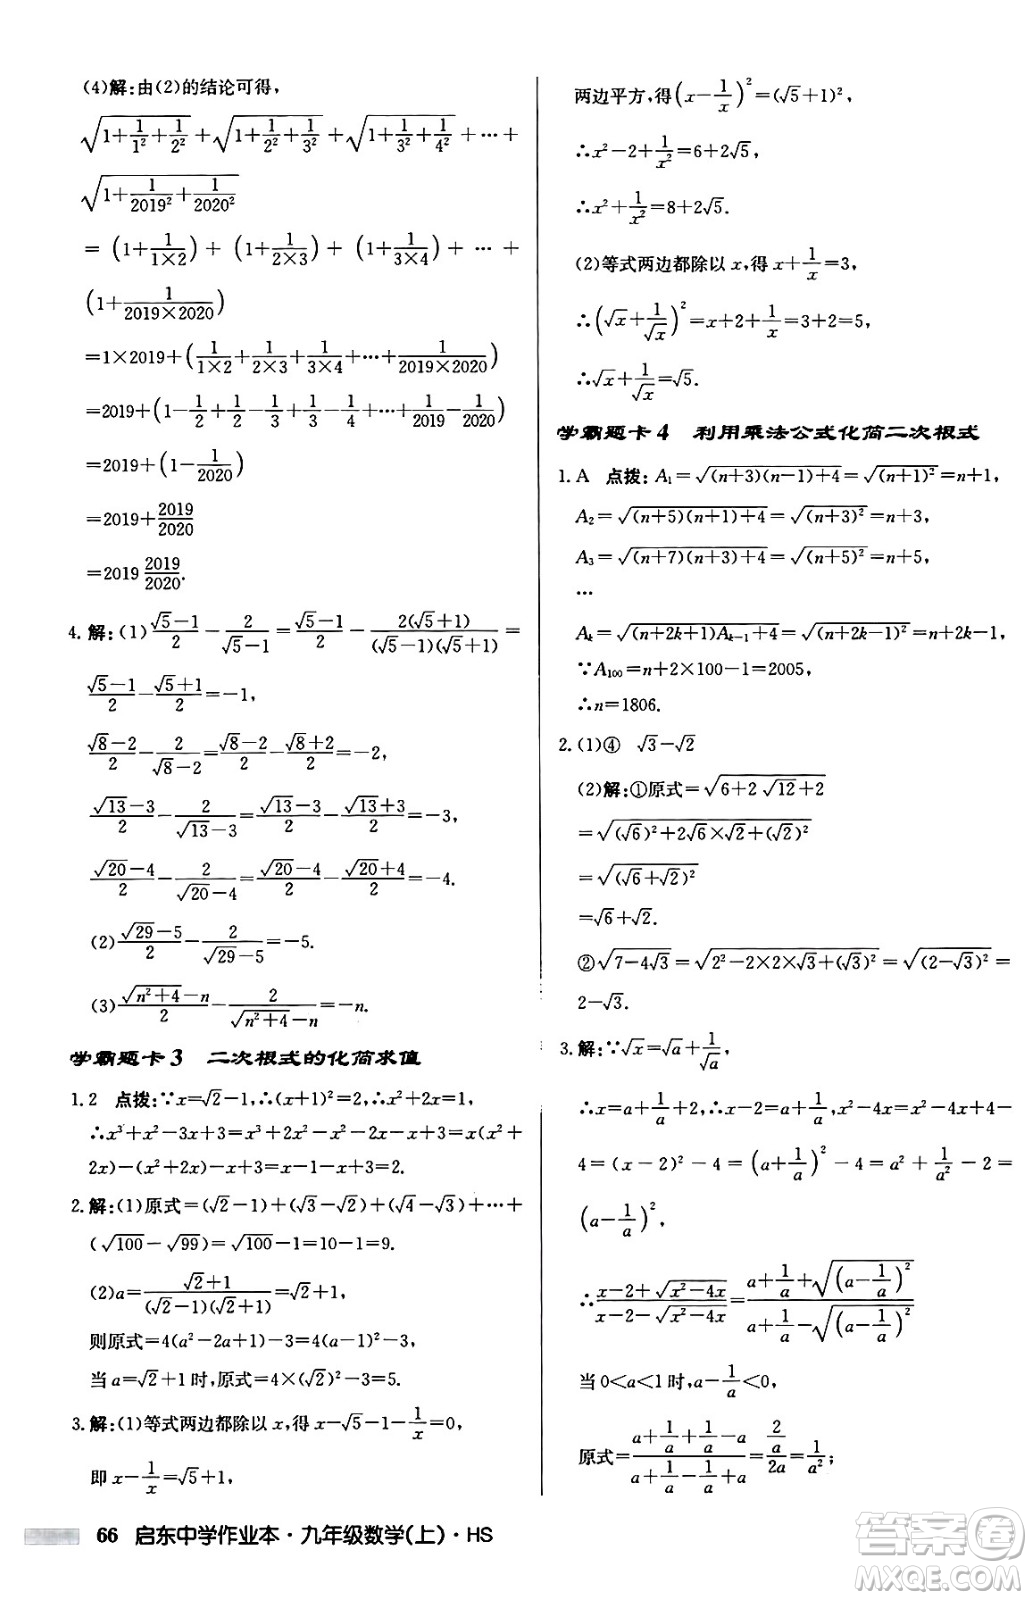 (4)解:由(2)的结论可得,
√(1+1/1²+1/2²)+√(1+1/2²+1/3²)+√(1+1/3²+1/4²)+…+
√(1+1/2019²+1/2020²)
=(1+1/(1×2))+(1+1/(2×3))+(1+1/(3×4))+…+
(1+1/(2019×2020))
=1×2019+(1/(1×2)+1/(2×3)+1/(3×4)+…+1/(2019×2020))
=2019+(1-1/2+1/2-1/3+1/3-1/4+…+1/2019-1/2020)
=2019+(1-1/2020)
=2019+2019/2020
=2019 2019/2020.
4.解:(1)(√5-1)/2-2/(√5-1)=(√5-1)/2-2(√5+1)/((√5-1)(√5+1))=
(√5-1)/2-(√5+1)/2=-1,
(√8-2)/2-2/(√8-2)=(√8-2)/2-(√8+2)/2=-2,
(√13-3)/2-2/(√13-3)=(√13-3)/2-(√13+3)/2=-3,
(√20-4)/2-2/(√20-4)=(√20-4)/2-(√20+4)/2=-4.
(2)(√29-5)/2-2/(√29-5)=-5.
(3)(√(n²+4)-n)/2-2/(√(n²+4)-n)=-n.
学霸题卡3 二次根式的化简求值
1.2 点拨:∵x=√2-1,∴(x+1)²=2,∴x²+2x=1,
∴x³+x²-3x+3=x³+2x²-x²-2x-x+3=x(x²+
2x)-(x²+2x)-x+3=x-1-x+3=2.
2.解:(1)原式=(√2-1)+(√3-√2)+(√4-√3)+…+
(√100-√99)=√100-1=10-1=9.
(2)a=(√2+1)/((√2-1)(√2+1))=√2+1,
则原式=4(a²-2a+1)-3=4(a-1)²-3,
当a=√2+1时,原式=4×(√2)²-3=5.
3.解:(1)等式两边都除以x,得x-√5-1-1/x=0,
即x-1/x=√5+1,
两边平方,得(x-1/x)²=(√5+1)²,
∴x²-2+1/x²=6+2√5,
∴x²+1/x²=8+2√5.
(2)等式两边都除以x,得x+1/x=3,
∴(√x+1/√x)²=x+2+1/x=3+2=5,
∴√x+1/√x=√5.
学霸题卡4 利用乘法公式化简二次根式
1.A 点拨:A₁=√((n+3)(n-1)+4)=√((n+1)²)=n+1,
A₂=√((n+5)(n+1)+4)=√((n+3)²)=n+3,
A₃=√((n+7)(n+3)+4)=√((n+5)²)=n+5,
…
Aₖ=√((n+2k+1)Aₖ₋₁+4)=√((n+2k-1)²)=n+2k-1,
∵A₁₀₀=n+2×100-1=2005,
∴n=1806.
2.(1)④ √3-√2
(2)解:①原式=√(6+2√12+2)
=√((√6)²+2√6×√2+(√2)²)
=√((√6+√2)²)
=√6+√2.
②√(7-4√3)=√(2²-2×2×√3+(√3)²)=√((2-√3)²)=
2-√3.
3.解:∵√x=√a+1/√a,
∴x=a+1/a+2,∴x-2=a+1/a,x²-4x=x²-4x+4-
4=(x-2)²-4=(a+1/a)²-4=a²+1/a²-2=
(a-1/a)²,
∴(x-2+√(x²-4x))/(x-2-√(x²-4x))=(a+1/a+√((a-1/a)²))/(a+1/a-√((a-1/a)²)).
当0<a<1时,a-1/a<0,
原式=(a+1/a+1/a-a)/(a+1/a-1/a+a)=(2/a)/2a=1/a²;
66 启东中学作业本·九年级数学(上)·HS
答案圈
MXQE.COM